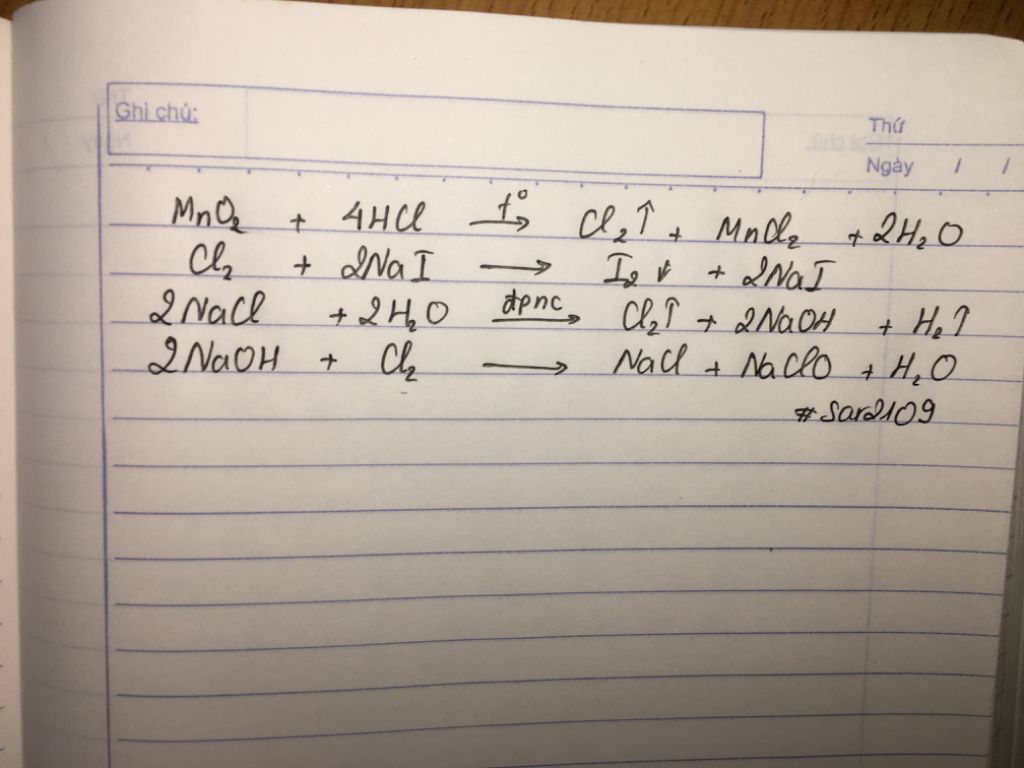 Ghi chú:
Thứ
Ngày / /
MnO₂ + 4HCl t° → Cl₂↑ + MnCl₂ + 2H₂O
Cl₂ + 2NaI → I₂↓ + 2NaI
2NaCl + 2H₂O đpnc → Cl₂↑ + 2NaOH + H₂↑
2NaOH + Cl₂ → NaCl + NaClO + H₂O
#Sar2109